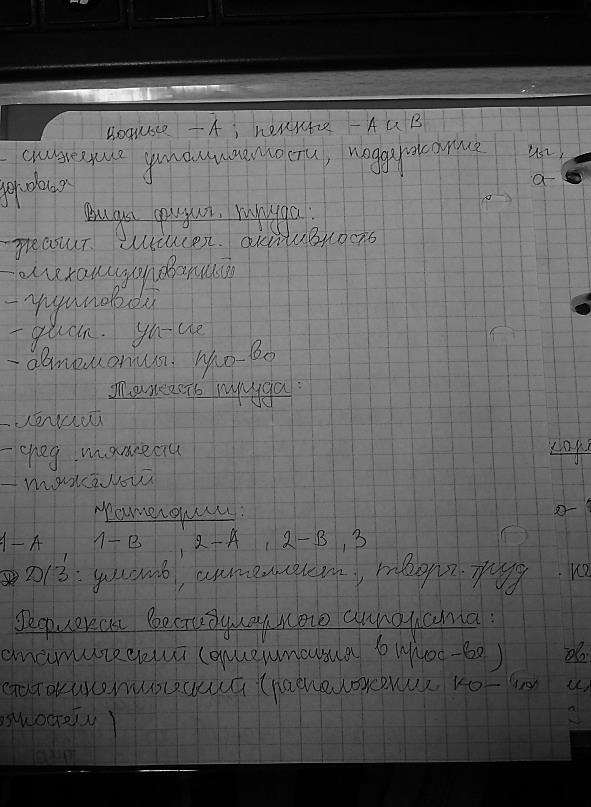 ионные - А; пенные - А и В
- снижение утомляемости, поддержание
здоровья
Виды физич. труда:
- мышеч. активность
- механизированный
- групповой
- дист. уп-ие
- автоматич. про-во
Тяжесть труда:
- лёгкий
- сред. тяжести
- тяжёлый
Категории:
1-А 1-В, 2-А, 2-В, 3
Д/З: умств, интеллект., творч. труд
Рефлексы вестибулярного аппарата:
статический (ориентация в прос-ве)
статокинетический (расположение ко-
нечностей)